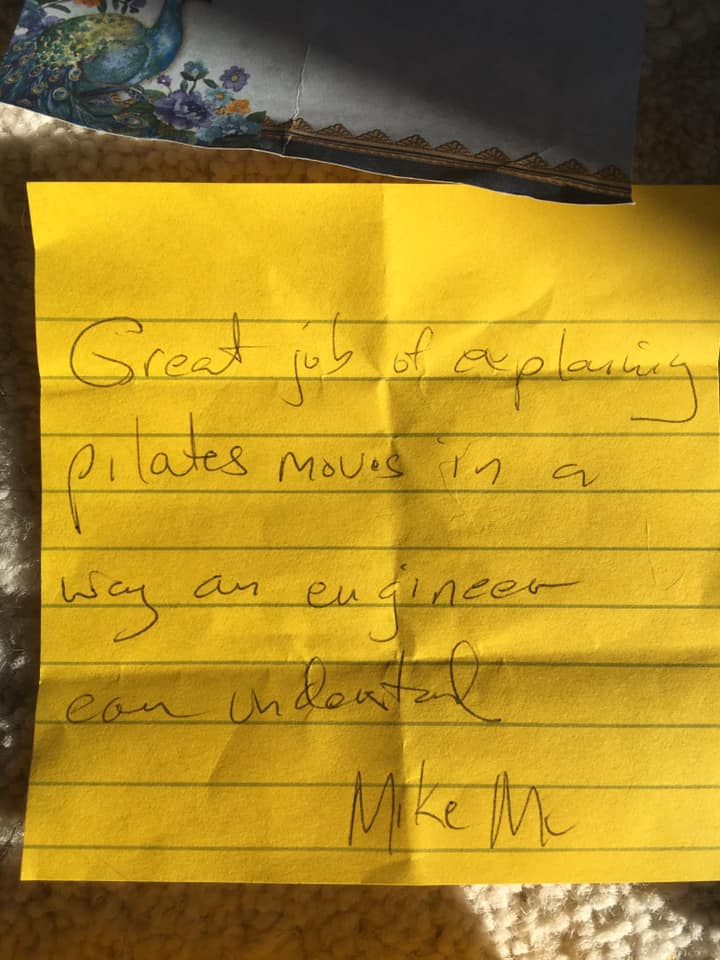 Great job of explaining
pilates moves in a
way an engineer
can understand
Mike Mc